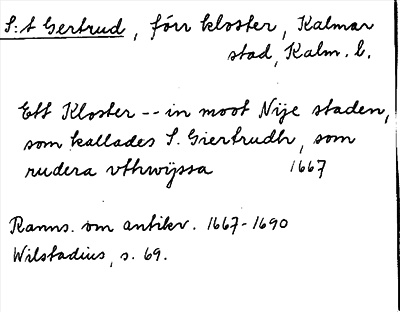 S:t Gertrud, förr kloster, Kalmar
stad, Kalm. l.
Ett Kloster -- in moot Nije staden,
som kallades S. Giertrudh, som
rudera vthwijssa 1667
Ranns. om antikv. 1667-1690
Wilstadius, s. 69.